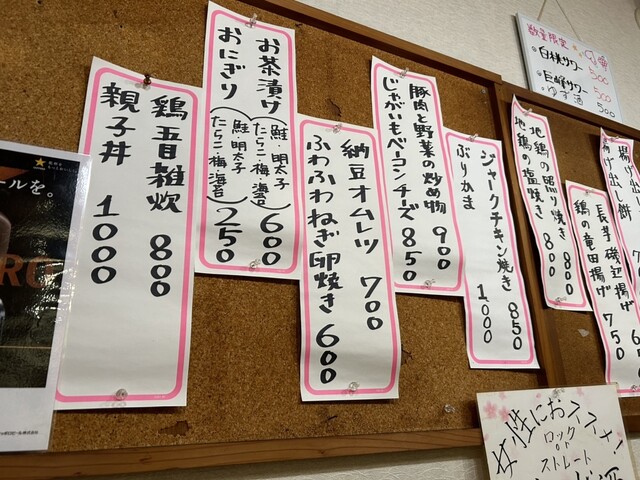 数量限定
・白桃サワー 500
・巨峰サワー 500
・ゆず酒 500
鶏の竜田揚げ 750
長芋磯辺揚げ
地鶏の照り焼き 800
地鶏の塩焼き 800
ジャークチキン焼き 850
ぶりかま 1000
豚肉と野菜の炒め物 900
じゃがいもベーコンチーズ 850
納豆オムレツ 700
ふわふわねぎ卵焼き 600
お茶漬け(鮭 明太子 たらこ 梅 海苔) 600
おにぎり(鮭 明太子 たらこ 梅 海苔) 250
鶏五目雑炊 800
親子丼 1000
ールを。
女性におススメ!
ロック
or
ストレート